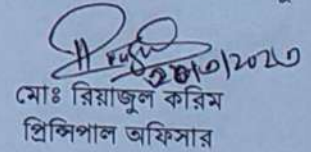 মোঃ রিয়াজুল করিম
প্রিন্সিপাল অফিসার